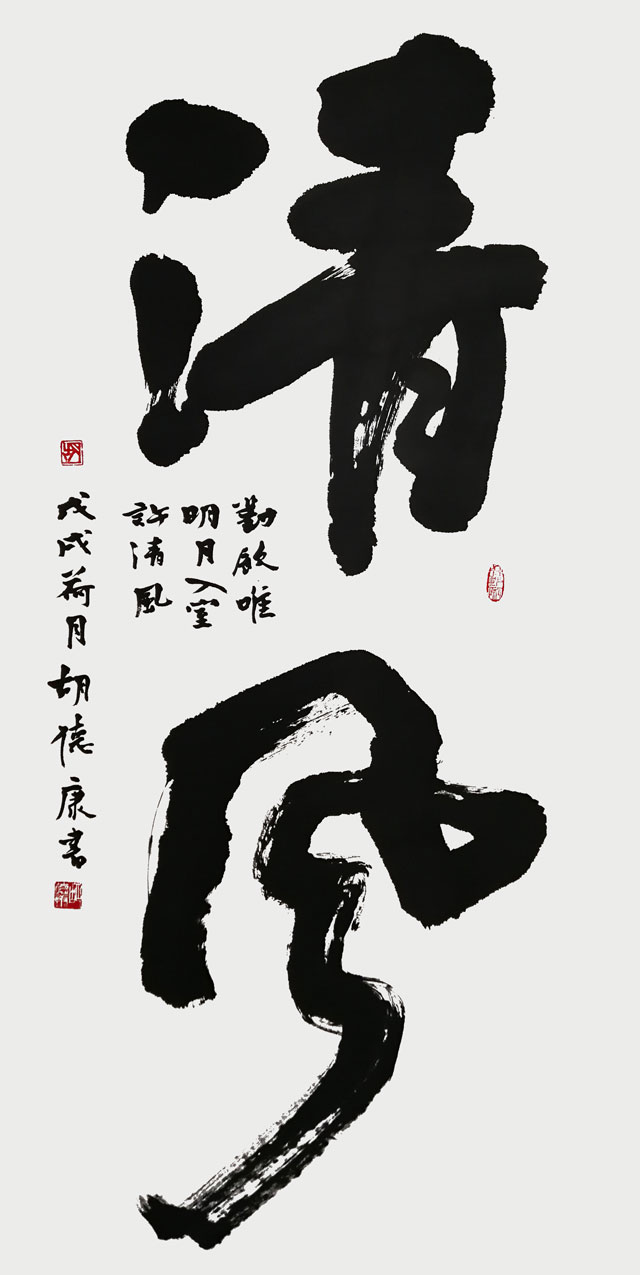 清風
對飲唯
明月入室
許清風
戊戌荷月胡德康書